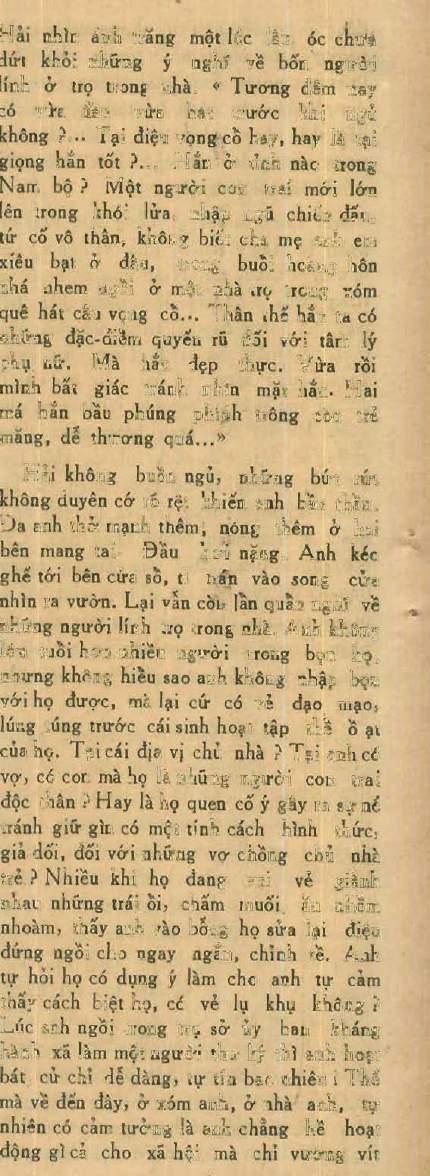 Hải nhìn ánh trăng một lúc óc chưa
dứt khỏi những ý nghĩ về bốn người
lính ở trọ trong nhà. « Tương đêm nay
có vừa vừa hát trước khi ngủ
không ?... Tại điệu vọng cổ hay, hay là tại
giọng hắn tốt ?... Hắn ở tỉnh nào trong
Nam bộ ? Một người con trai mới lớn
lên trong khói lửa, nhập ngũ chiến đấu,
tứ cố vô thân, không biết cha mẹ anh em
xiêu bạt ở đâu, trong buổi hoàng hôn
nhá nhem ngồi ở một nhà trọ trong xóm
quê hát câu vọng cổ... Thân thế hắn ta có
những đặc-điểm quyến rũ đối với tâm lý
phụ nữ. Mà hắn đẹp thực. Vừa rồi
mình bất giác tránh nhìn mặt hắn. Hai
má hắn bầu phúng phính trông còn trẻ
măng, dễ thương quá...»
Hải không buồn ngủ, những bứt rứt
không duyên cớ rõ rệt khiến anh bần thần.
Da anh thở mạnh thêm, nóng thêm ở hai
bên mang tai. Đầu hơi nặng. Anh kéo
ghế tới bên cửa sổ, tì trán vào song cửa
nhìn ra vườn. Lại vẫn còn lần quần nghĩ về
những người lính trọ trong nhà. Anh không
lớn tuổi hơn nhiều người trong bọn họ,
nhưng không hiểu sao anh không nhập bọn
với họ được, mà lại cứ có vẻ đạo mạo,
lúng túng trước cái sinh hoạt tập thể ồ ạt
của họ. Tại cái địa vị chủ nhà ? Tại anh có
vợ, có con mà họ là những người con trai
độc thân ? Hay là họ quen cố ý gây ra sự né
tránh giữ gìn có một tính cách hình thức,
giả dối, đối với những vợ chồng chủ nhà
trẻ ? Nhiều khi họ đang vui vẻ giành
nhau những trái ổi, chấm muối, ăn nhồm
nhoàm, thấy anh vào bỗng họ sửa lại điệu
đứng ngồi cho ngay ngắn, chỉnh tề. Anh
tự hỏi họ có dụng ý làm cho anh tự cảm
thấy cách biệt họ, có vẻ lụ khụ không ?
Lúc anh ngồi trong trụ sở ủy ban kháng
hành xã làm một người thư ký thì anh hoạt
bát, cử chỉ dễ dàng, tự tín bao nhiêu ! Thế
mà về đến đây, ở xóm anh, ở nhà anh, tự
nhiên có cảm tưởng là anh chẳng hề hoạt
động gì cả cho xã hội mà chỉ vương vít